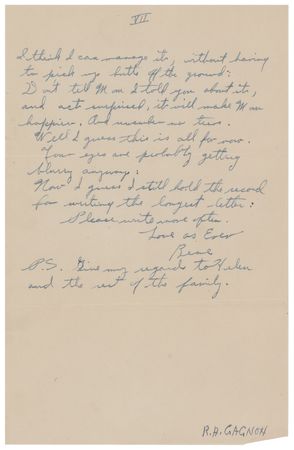 VII
I think I can manage it, without having
to pick up butts off the ground:
Don't tell Mom I told you about it,
and act surprised, it will make Mom
happier. And us
Well I guess this is all for now.
Your eyes are probably getting
blurry anyway:
Now I guess I still hold the record
for writing the longest letter:
Please write more often.
Love as Ever
Rene
P.S. Give my regards to Helen
and the rest of the family.
R.A. GAGNON